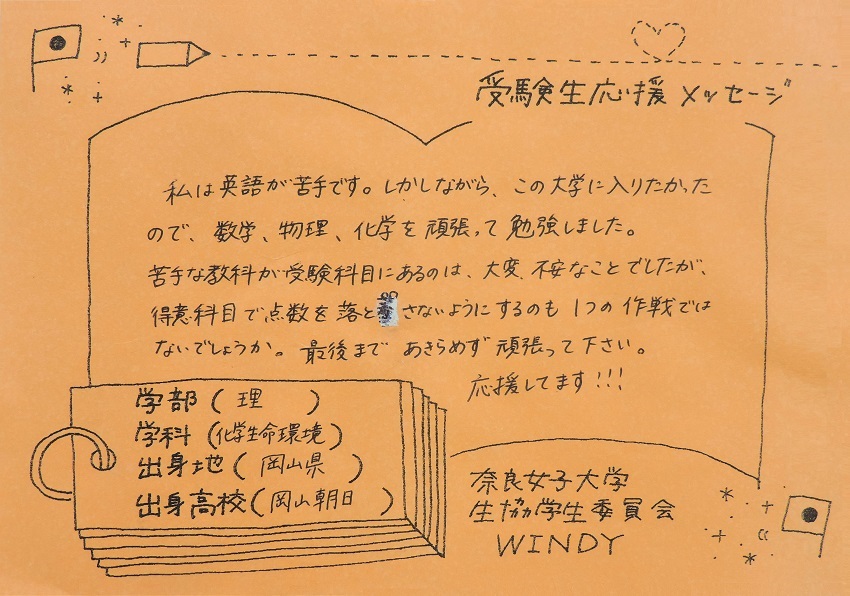 受験生応援メッセージ
私は英語が苦手です。しかしながら、この大学に入りたかった
ので、数学、物理、化学を頑張って勉強しました。
苦手な教科が受験科目にあるのは、大変、不安なことでしたが、
得意科目で点数を落とさないようにするのも1つの作戦では
ないでしょうか。最後まであきらめず頑張って下さい。
応援してます!!!
学部(理)
学科(化学生命環境)
出身地(岡山県)
出身高校(岡山朝日)
奈良女子大学
生協学生委員会
WINDY